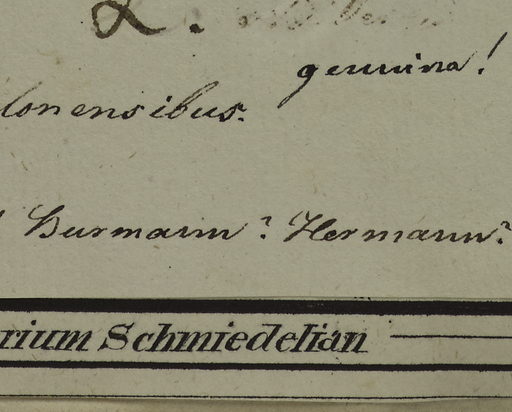 L.
genuina!
lonensibus.
Burmann? Hermann?
rium Schmiedelian